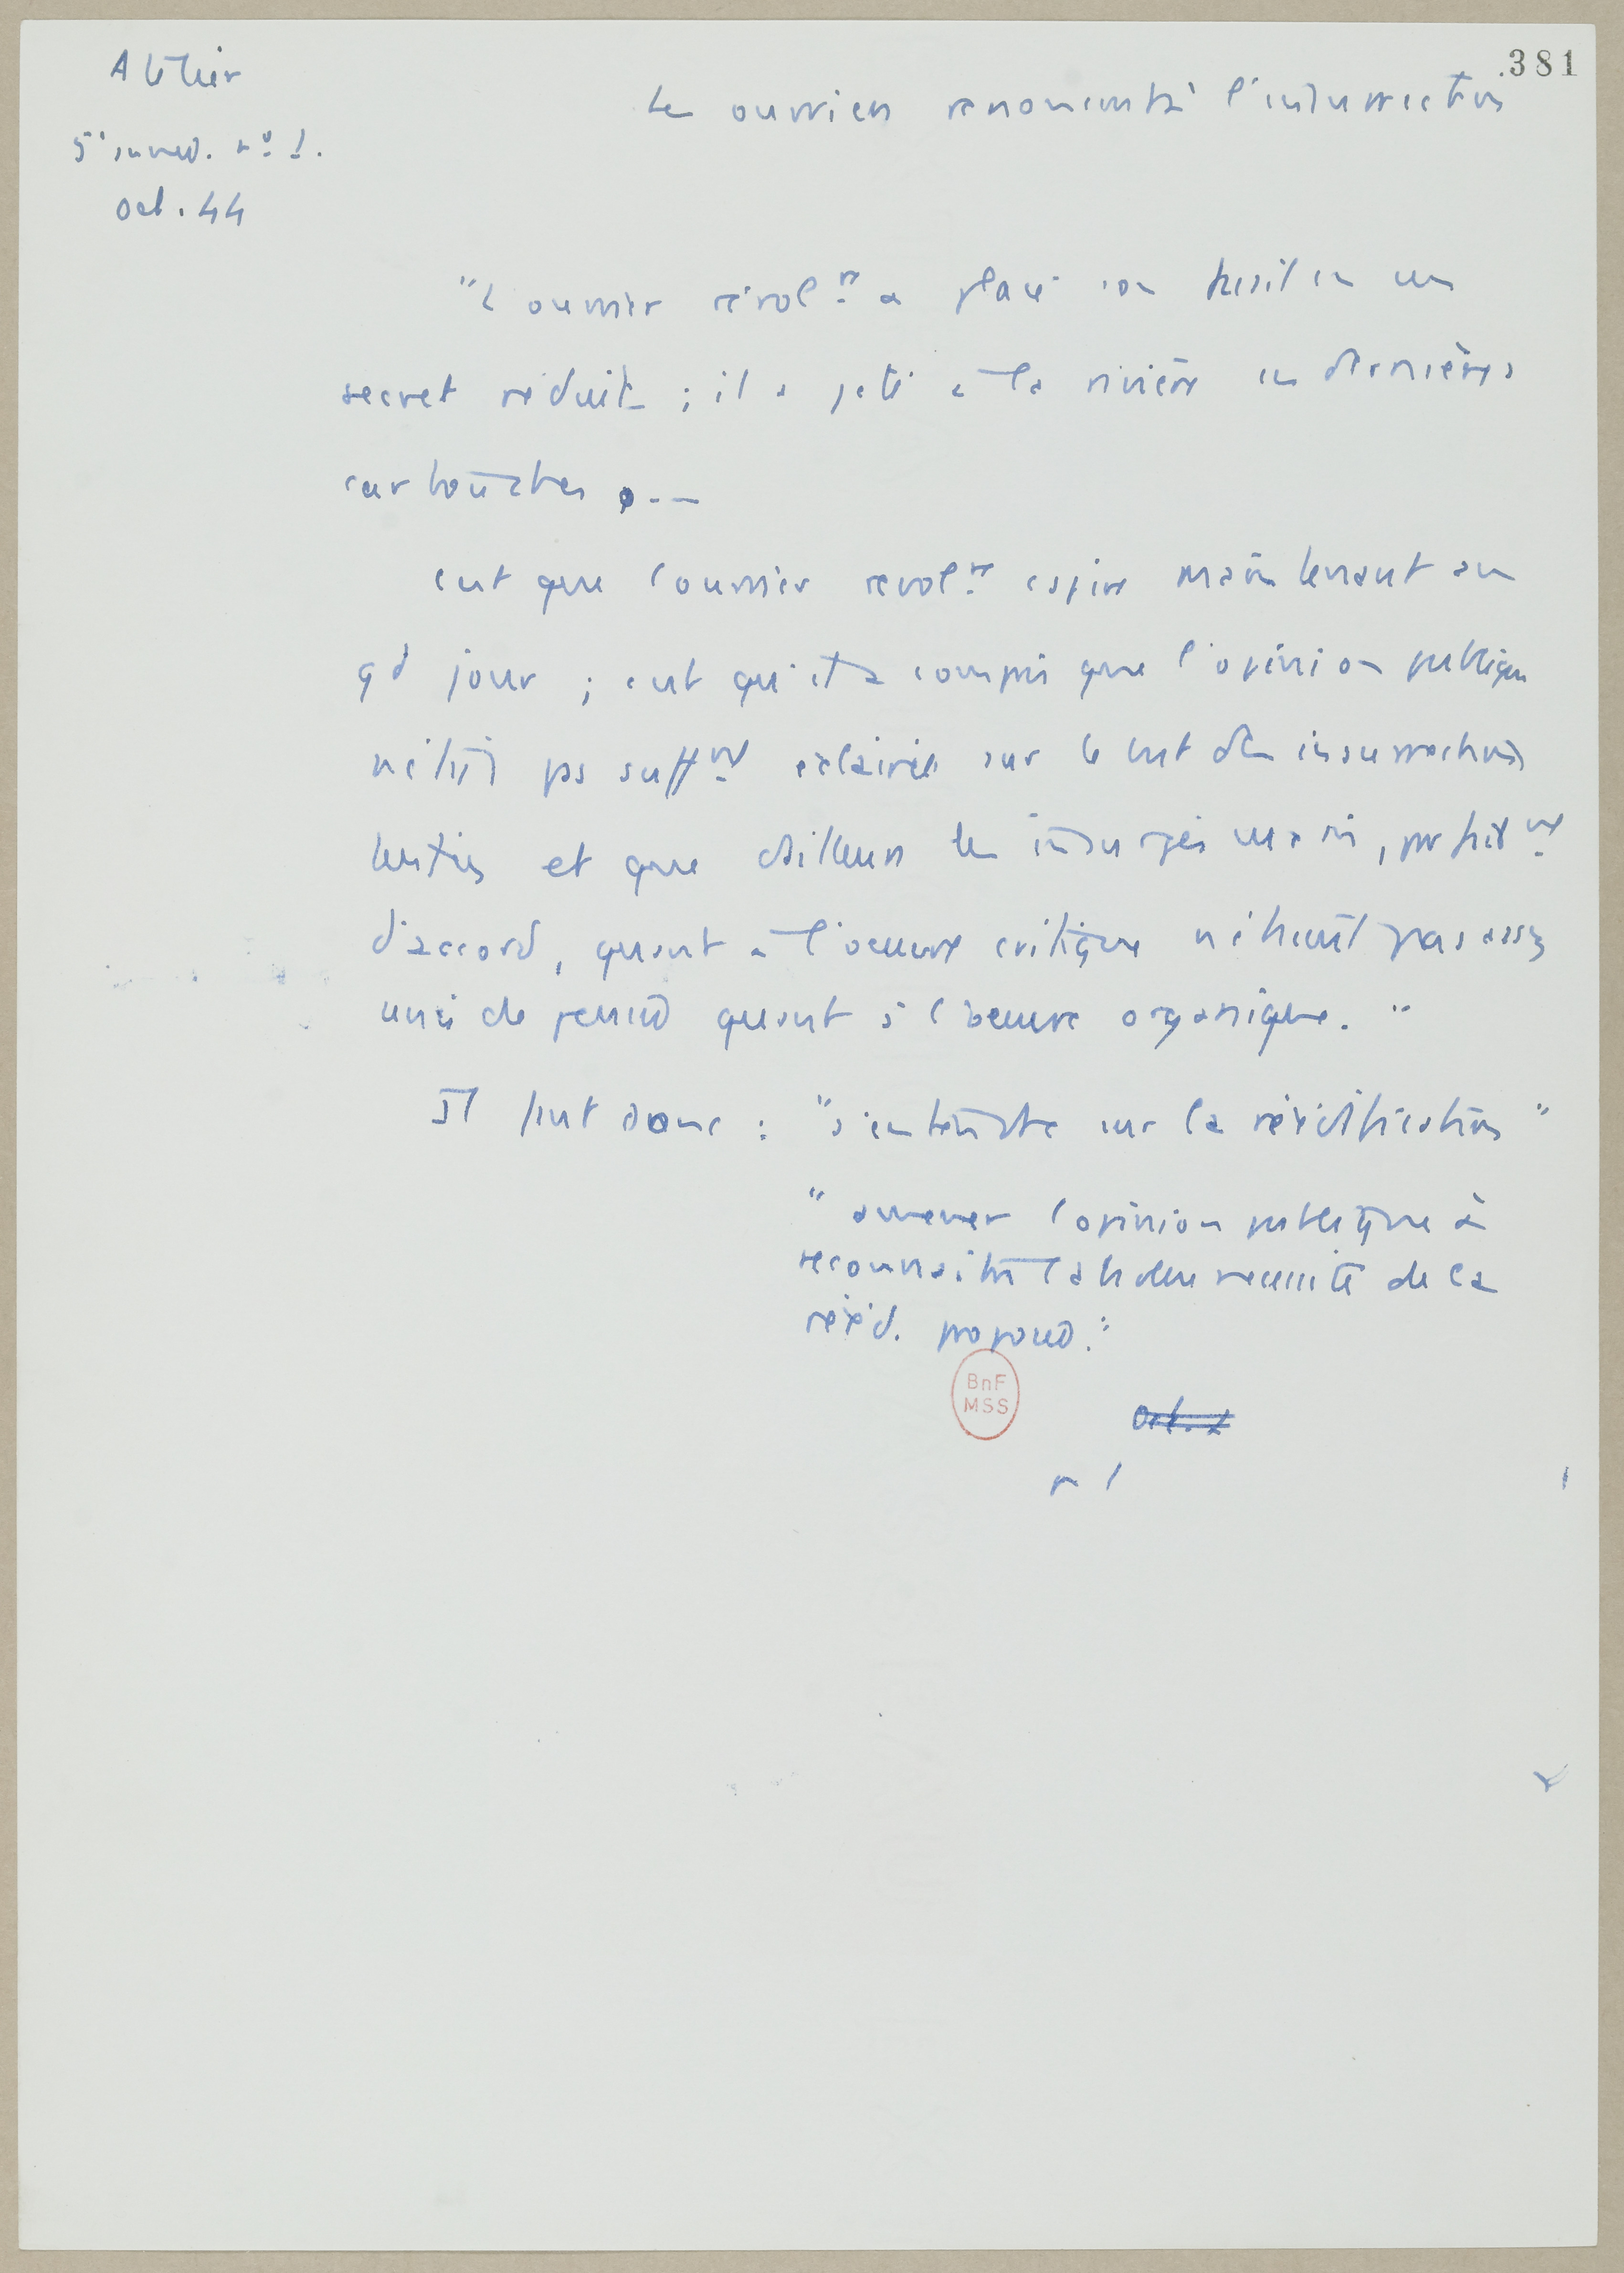 381
Atelier
5e année. nº 1.
Oct. 44
Les ouvriers renoncent à l'insurrection
"L'ouvrier révolre a placé son fusil en un
secret réduit ; il a jeté à la rivière ses dernières
cartouches ...
c'est que l'ouvrier révolre espère maintenant au
gd jour ; c'est qu'il a compris que l'opinion publique
n'était pas suffmt éclairée sur le but des insurrections
tentées et que d'ailleurs les insurgés unis, parfaitmt
d'accord, quant à l'oeuvre critique n'étaient pas assez
unis de pensée quant à l'oeuvre organique."
Il faut donc : "s'entendre sur la réédification"
"amener l'opinion publique à
reconnaître l'absolue nécessité de la
rééd. proposée."
BnF
MSS
Oct.
p 1